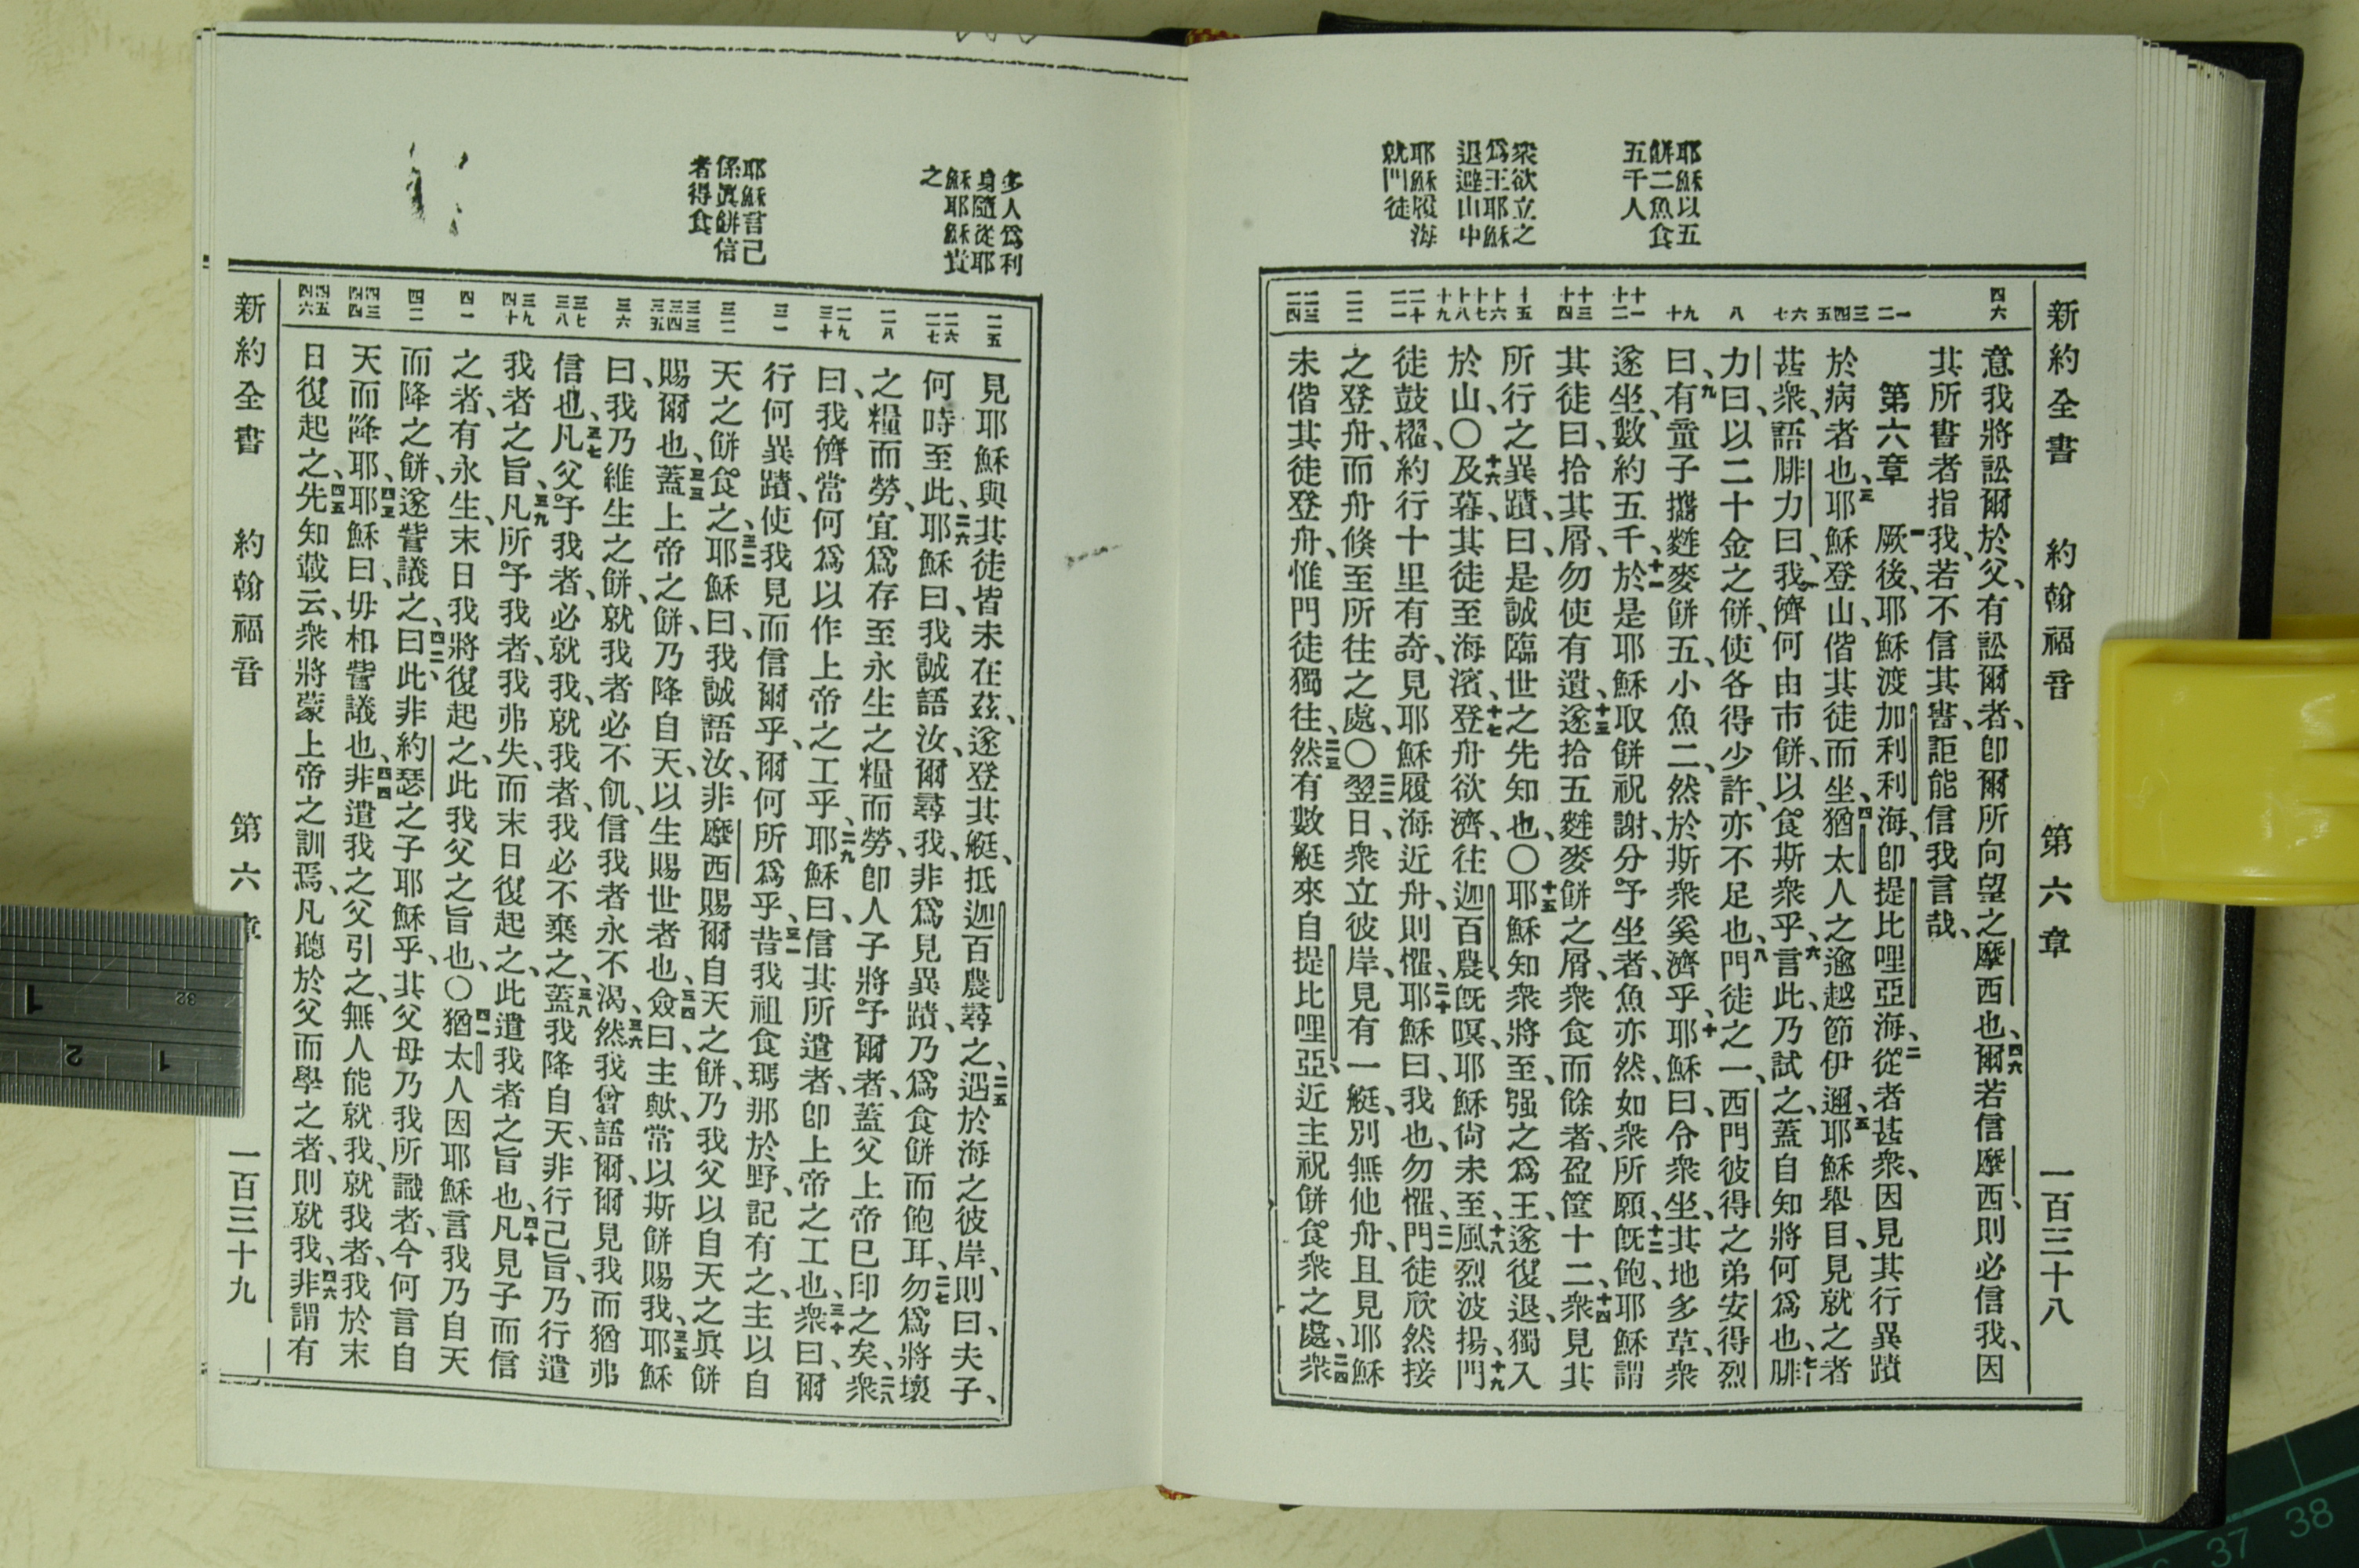 新約全書 約翰福音 第六章 一百三十八
耶穌以五
餅二魚食
五千人
衆欲立之
爲王耶穌
退避山中
耶穌履海
就門徒
四六
一
二
三
四
五
六
七
八
九
十
十一
十二
十三
十四
十五
十六
十七
十八
十九
二十
二一
二二
二三
二四
意我將訟爾於父、有訟爾者、卽爾所向望之摩西也、四六爾若信摩西、則必信我、因
其所書者指我、若不信其書、詎能信我言哉、
第六章 一厥後、耶穌渡加利利海、卽提比哩亞海、二從者甚衆、因見其行異蹟
於病者也、三耶穌登山、偕其徒而坐、四猶太人之逾越節伊邇、五耶穌舉目、見就之者
甚衆、語腓力曰、我儕何由市餅、以食斯衆乎、六言此、乃試之、蓋自知將何爲也、七腓
力曰、以二十金之餅、使各得少許、亦不足也、八門徒之一、西門彼得之弟安得烈
曰、九有童子攜麰麥餅五、小魚二、然於斯衆奚濟乎、十耶穌曰、令衆坐、其地多草、衆
遂坐、數約五千、十一於是耶穌取餅祝謝、分予坐者、魚亦然、如衆所願、十二旣飽、耶穌謂
其徒曰、拾其屑、勿使有遺、十三遂拾五麰麥餅之屑、衆食而餘者、盈筐十二、十四衆見其
所行之異蹟、曰、是誠臨世之先知也、〇十五耶穌知衆將至、强之爲王、遂復退、獨入
於山、〇十六及暮、其徒至海濱、十七登舟欲濟、往迦百農、旣暝、耶穌尙未至、十八風烈波揚、十九門
徒鼓櫂、約行十里有奇、見耶穌履海近舟、則懼、二十耶穌曰、我也、勿懼、二一門徒欣然接
之登舟、而舟倏至所往之處、〇二二翌日、衆立彼岸、見有一艇、別無他舟、且見耶穌
未偕其徒登舟、惟門徒獨往、二三然有數艇來自提比哩亞、近主祝餅食衆之處、二四衆
多人爲利
身隨從耶
穌耶穌責
之
耶穌言己
係眞餅信
者得食
二五
二六
二七
二八
二九
三十
三一
三二
三三
三四
三五
三六
三七
三八
三九
四十
四一
四二
四三
四四
四五
四六
見耶穌與其徒皆未在茲、遂登其艇、抵迦百農尋之、二五遇於海之彼岸、則曰、夫子、
何時至此、二六耶穌曰、我誠語汝、爾尋我、非爲見異蹟、乃爲食餅而飽耳、二七勿爲將壞
之糧而勞、宜爲存至永生之糧而勞、卽人子將予爾者、蓋父上帝已印之矣、二八衆
曰、我儕當何爲以作上帝之工乎、二九耶穌曰、信其所遣者、卽上帝之工也、三十衆曰、爾
行何異蹟、使我見而信爾乎、爾何所爲乎、三一昔我祖食瑪那於野、記有之、主以自
天之餅食之、三二耶穌曰、我誠語汝、非摩西賜爾自天之餅、乃我父以自天之眞餅
賜爾也、三三蓋上帝之餅、乃降自天、以生賜世者也、三四僉曰、主歟、常以斯餅賜我、三五耶穌
曰、我乃維生之餅、就我者必不飢、信我者永不渴、三六然我曾語爾、爾見我而猶弗
信也、三七凡父予我者、必就我、就我者、我必不棄之、三八蓋我降自天、非行己旨、乃行遣
我者之旨、三九凡所予我者、我弗失、而末日復起之、此遣我者之旨也、四十凡見子而信
之者、有永生、末日我將復起之、此我父之旨也、〇四一猶太人因耶穌言我乃自天
而降之餅、遂訾議之、四二曰、此非約瑟之子耶穌乎、其父母乃我所識者、今何言自
天而降耶、四三耶穌曰、毋相訾議也、四四非遣我之父引之、無人能就我、就我者、我於末
日復起之、四五先知載云、衆將蒙上帝之訓焉、凡聽於父而學之者、則就我、四六非謂有
新約全書 約翰福音 第六章 一百三十九
1
32
2 1
37 38